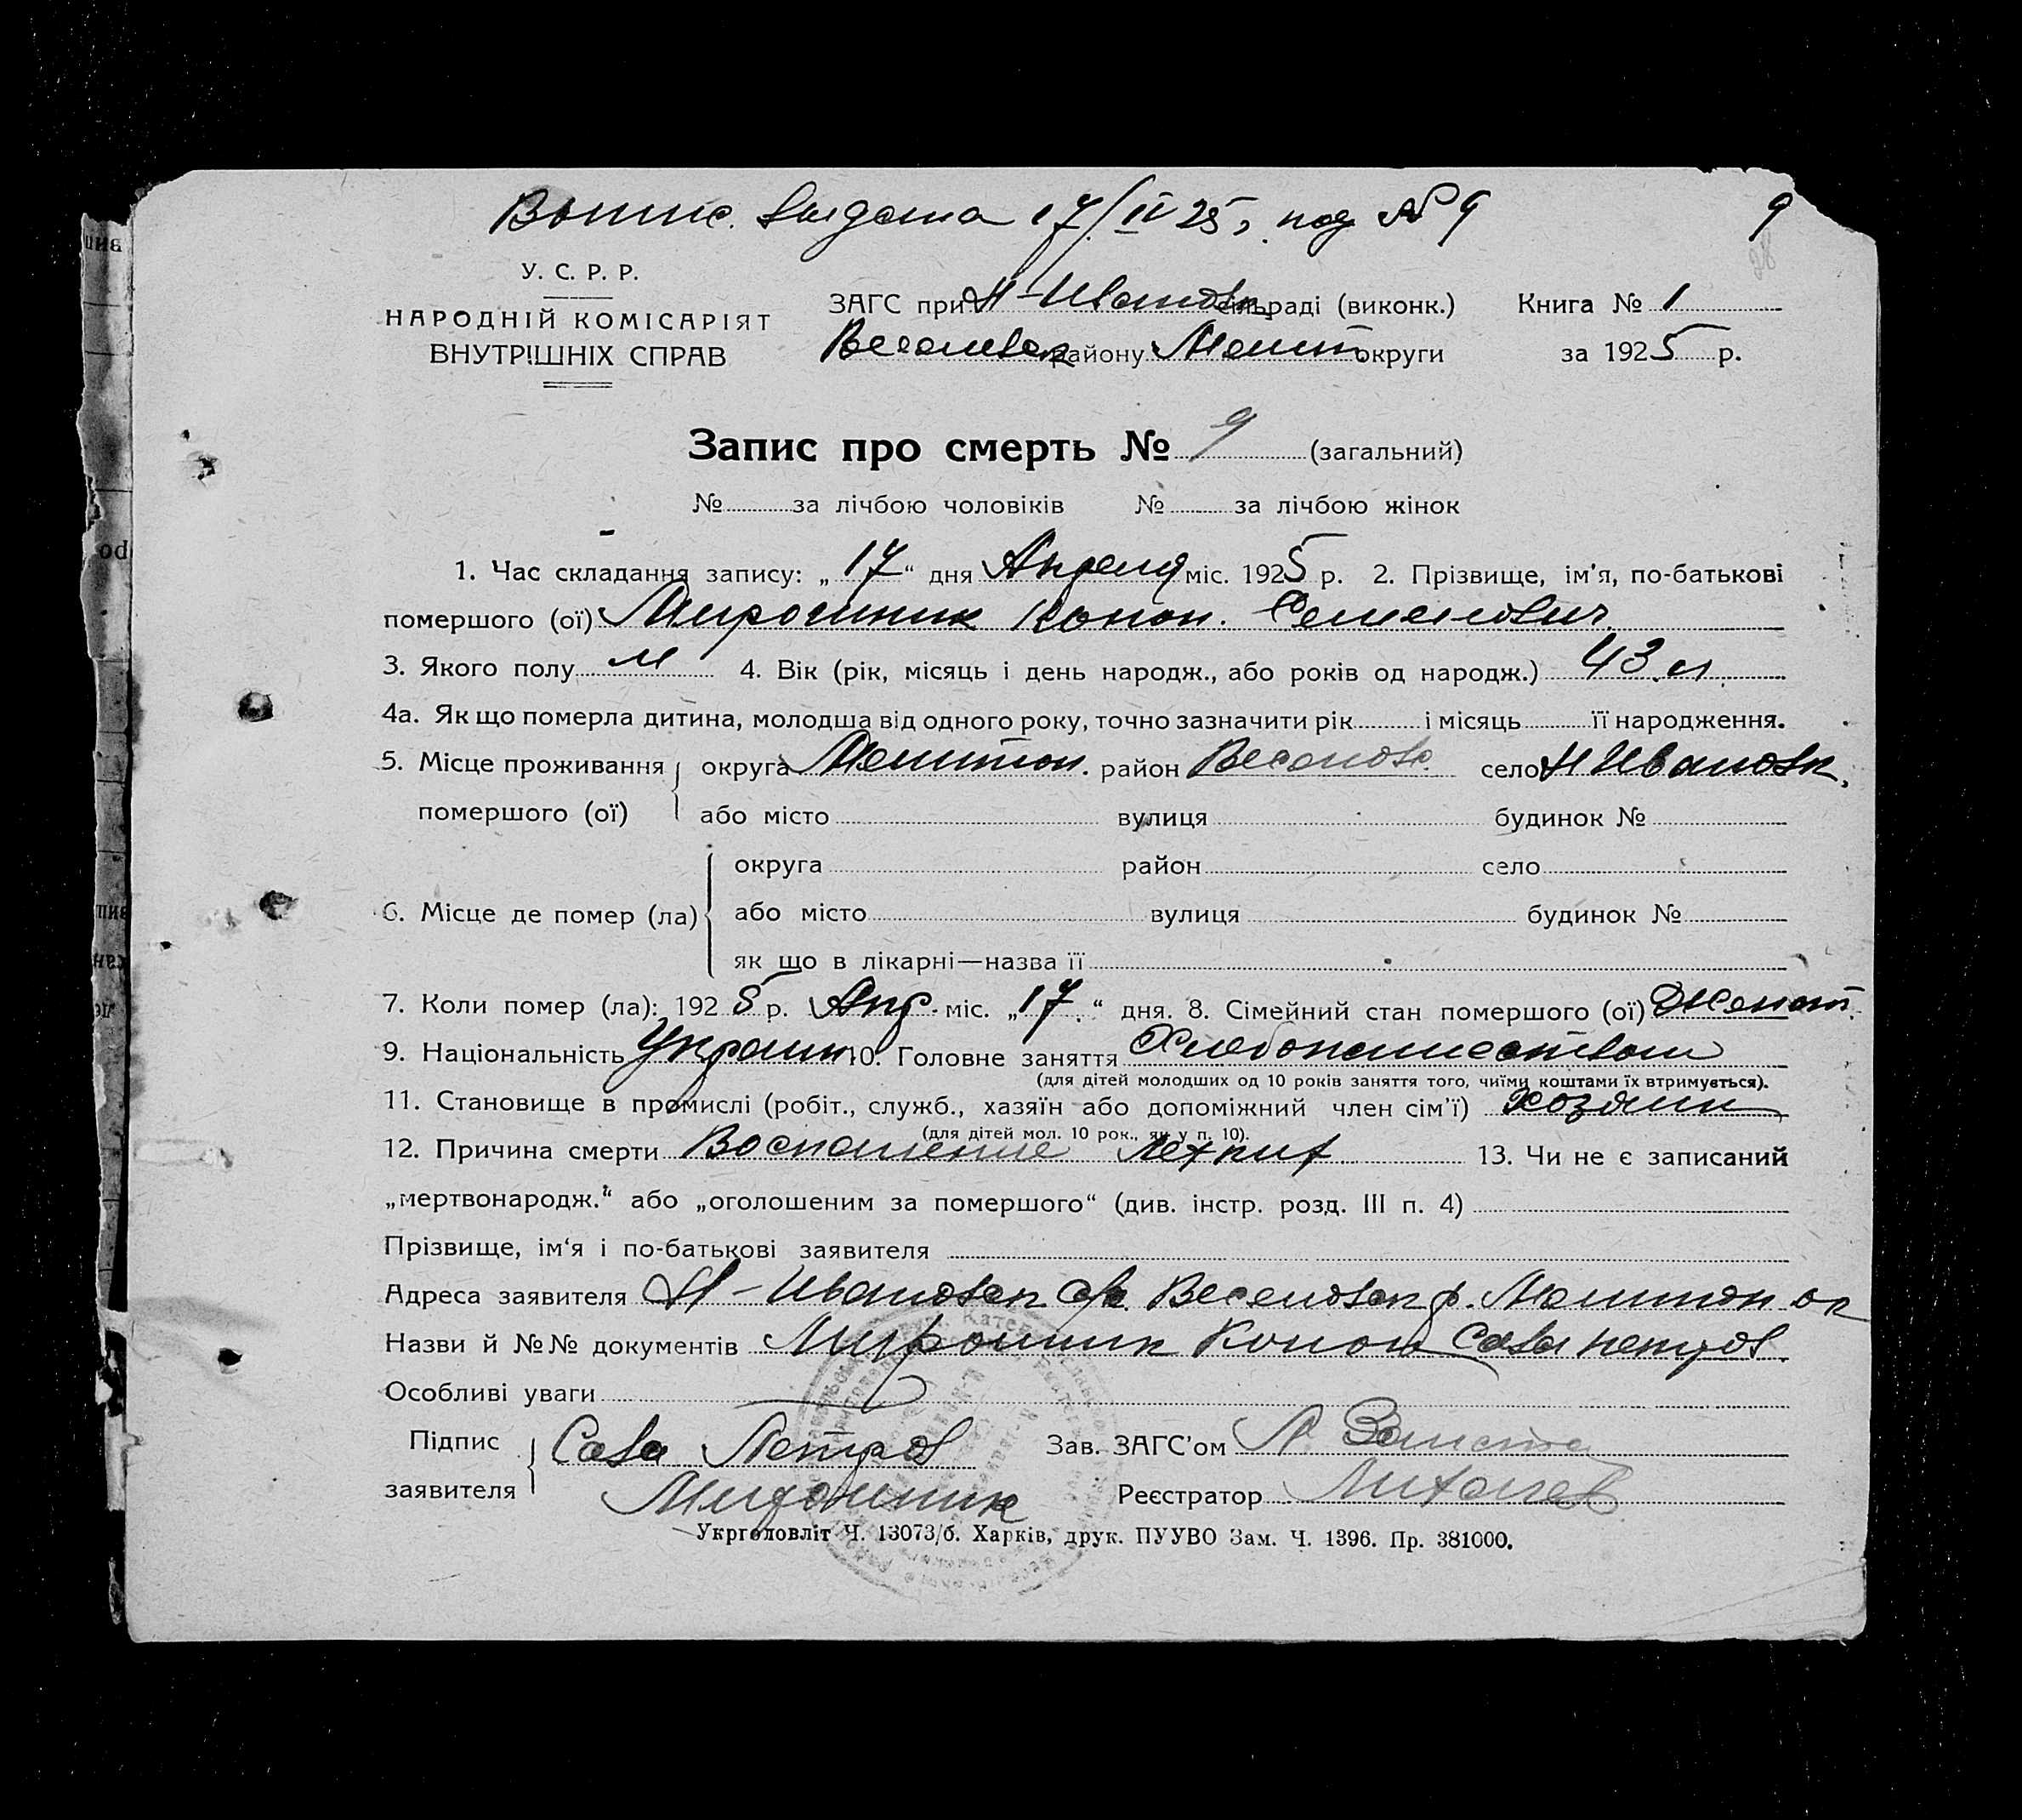 Выпис. выдана 17/IV 25 г. под № 9
9
28
У. С. Р. Р.
НАРОДНІЙ КОМІСАРІЯТ
ВНУТРІШНІХ СПРАВ
ЗАГС при Н-Ивановк сільраді (виконк.) Книга № 1
Веселовск району Мелит округи за 1925 р.
Запис про смерть № 9 (загальний)
№ за лічбою чоловіків № за лічбою жінок
1. Час складання запису: „17“ дня Апреля міс. 1925 р. 2. Прізвище, ім'я, по-батькові
помершого (ої) Мирошник Конон. Семенович.
3. Якого полу м 4. Вік (рік, місяць і день народж., або років од народж.) 43 л.
4а. Як що померла дитина, молодша від одного року, точно зазначити рік і місяць її народження.
5. Місце проживання округа Мелитоп. район Веселовск. село Н Ивановк,
помершого (ої) або місто вулиця будинок №
округа район село
6. Місце де помер (ла) або місто вулиця будинок №
як що в лікарні—назва її
7. Коли помер (ла): 1925 р. Апр. міс. „17.“ дня. 8. Сімейний стан помершого (ої) Женат.
9. Національність Украин. 10. Головне заняття Хлебопашеством
(для дітей молодших од 10 років заняття того, чиїми коштами їх втримується).
11. Становище в промислі (робіт., служб., хазяїн або допоміжний член сім'ї) хозяин
(для дітей мол. 10 рок., як у п. 10).
12. Причина смерти Воспаление Легких 13. Чи не є записаний
„мертвонародж.“ або „оголошеним за помершого“ (див. інстр. розд. III п. 4)
Прізвище, ім'я і по-батькові заявителя
Адреса заявителя Н-Ивановск с/с Веселовск р. Мелитоп ок
Назви й №№ документів Мирошник Конон Сава петров.
Особливі уваги
Підпис заявителя Сава Петров
Мирошник
Зав. ЗАГС'ом
Реєстратор
Укрголовліт Ч. 13073/б. Харків, друк. ПУУВО Зам. Ч. 1396. Пр. 381000.